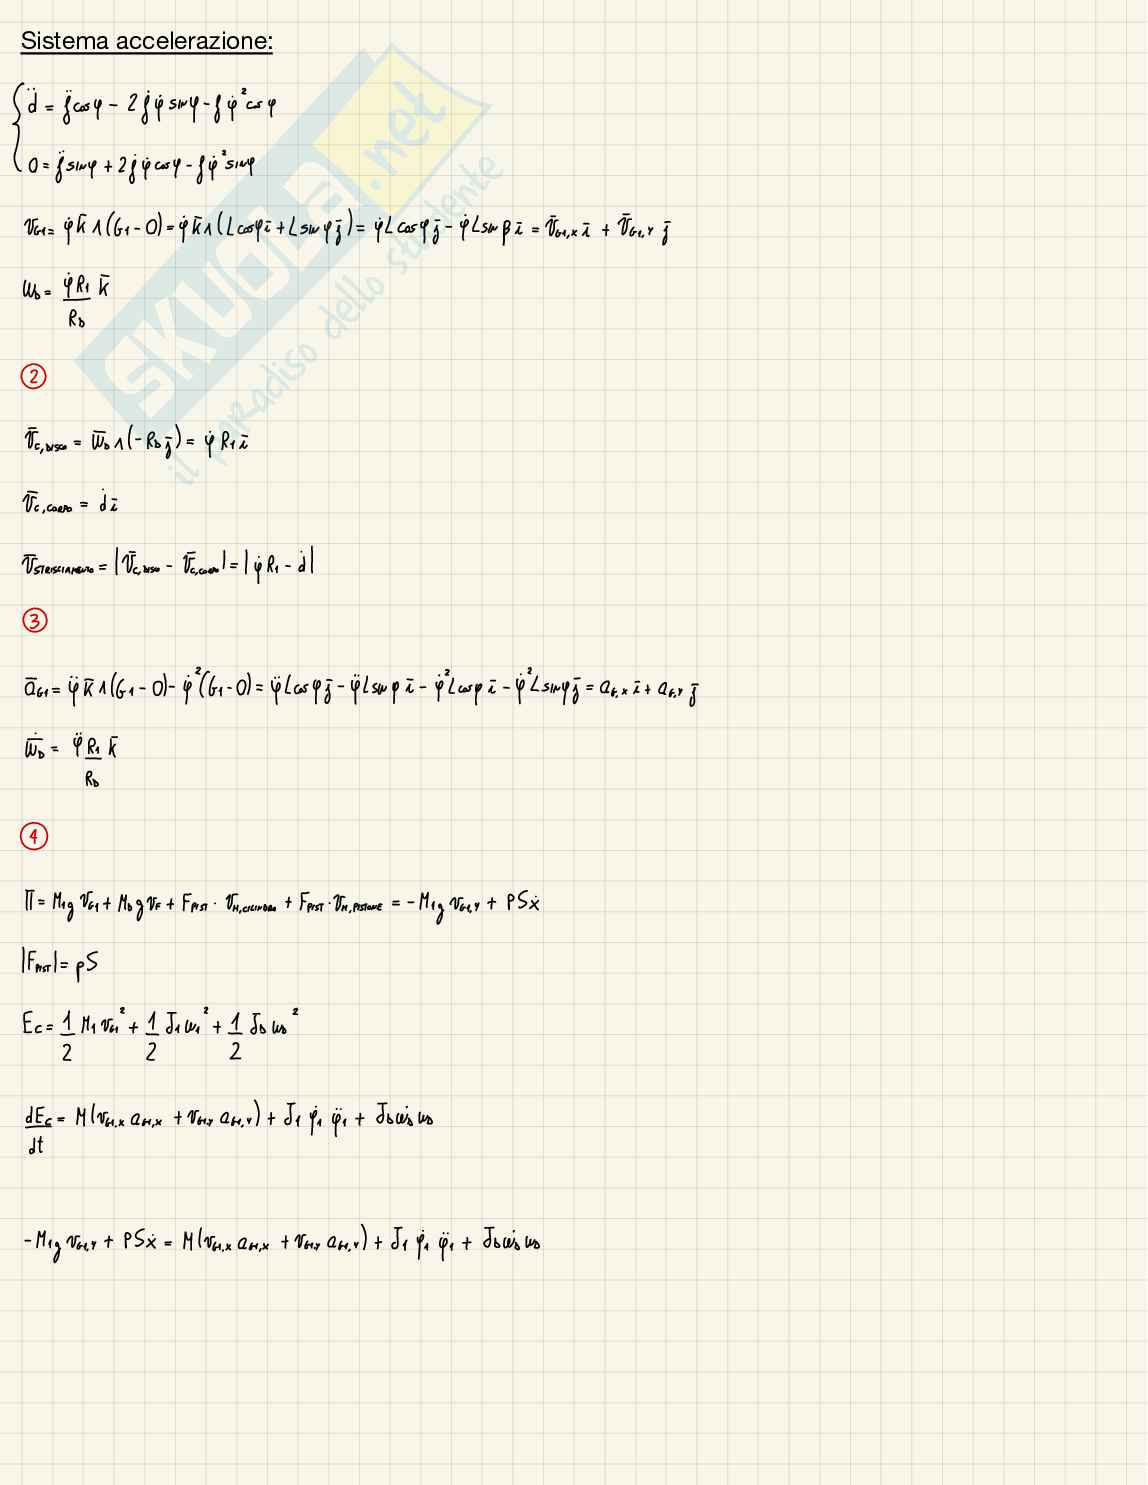 Sistema accelerazione:
d̈ = f̈ cos φ - 2 ḟ φ̇ sin φ - f φ̇² cos φ
0 = f̈ sin φ + 2 ḟ φ̇ cos φ - f φ̇² sin φ
v_G1 = φ̇ k̄ ∧ (G1 - O) = φ̇ k̄ ∧ (L cos φ ī + L sin φ j̄) = φ̇ L cos φ j̄ - φ̇ L sin β ī = v̄_G1,x ī + v̄_G1,y j̄
ω_D = φ̇ R1 / R_D k̄
2
v̄_C,DISCO = ω̄_D ∧ (-R_D j̄) = φ̇ R1 ī
v̄_C,CORPO = ḋ ī
v̄_STRISCIAMENTO = |v̄_C,DISCO - v̄_C,CORPO| = |φ̇ R1 - ḋ|
3
ā_G1 = φ̈ k̄ ∧ (G1 - O) - φ̇² (G1 - O) = φ̈ L cos φ j̄ - φ̈ L sin φ ī - φ̇² L cos φ ī - φ̇² L sin φ j̄ = a_G,x ī + a_G,y j̄
ω̄̇_D = φ̈ R1 / R_D k̄
4
Π = M1 g v_G1 + M_D g v_F + F_PIST · v_H,CILINDRO + F_PIST · v_H,PISTONE = - M1 g v_G1,y + P S ẋ
|F_PIST| = p S
E_C = 1/2 M1 v_G1² + 1/2 J1 ω1² + 1/2 J_D ω_D²
dE_C/dt = M (v_G1,x a_G1,x + v_G1,y a_G1,y) + J1 φ̇1 φ̈1 + J_D ω̇_D ω_D
- M1 g v_G1,y + P S ẋ = M (v_G1,x a_G1,x + v_G1,y a_G1,y) + J1 φ̇1 φ̈1 + J_D ω̇_D ω_D
SKUOLA.net
il paradiso dello studente